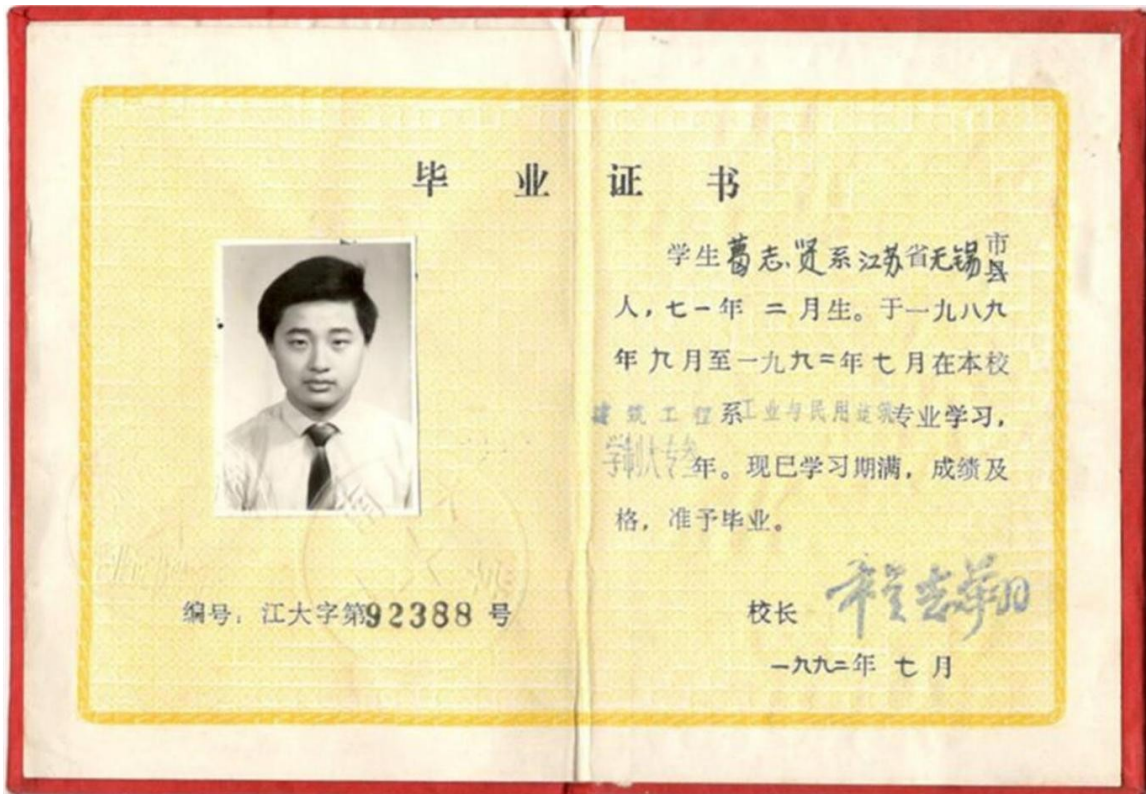 毕业证书
学生葛志贤系江苏省无锡市县
人，七一年 二月生。于一九八九
年九月至一九九二年七月在本校
建筑工程系工业与民用建筑专业学习，
学制大专叁年。现已学习期满，成绩及
格，准予毕业。
编号：江大字第92388号
校长
一九九二年 七月